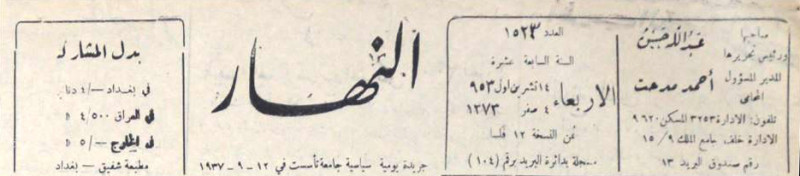 صاحبها
ورئيس تحريرها
عبد الله حسن
المدير المسؤول
المحامي
أحمد مدحت
تلفون: الادارة ٣٢٥٣ المسكن ٩٦٢٠
الادارة خلف جامع الملك ٩ / ١٥
رقم صندوق البريد ١٣
العدد ١٥٢٣
السنة السابعة عشرة
الاربعاء
١٤ تشرين اول ٩٥٣
٤ صفر ١٣٧٣
ثمن النسخة ١٢ فلسا
مسجلة بدائرة البريد برقم (١٠٤)
النهار
جريدة يومية سياسية جامعة تأسست في ١٢ – ٩ – ١٩٣٧
بدل المشاركة
في بغداد —/٤ دنا
في العراق ٤/٥٠٠ »
في الخارج —/٥ »
مطبعة شفيق – بغداد